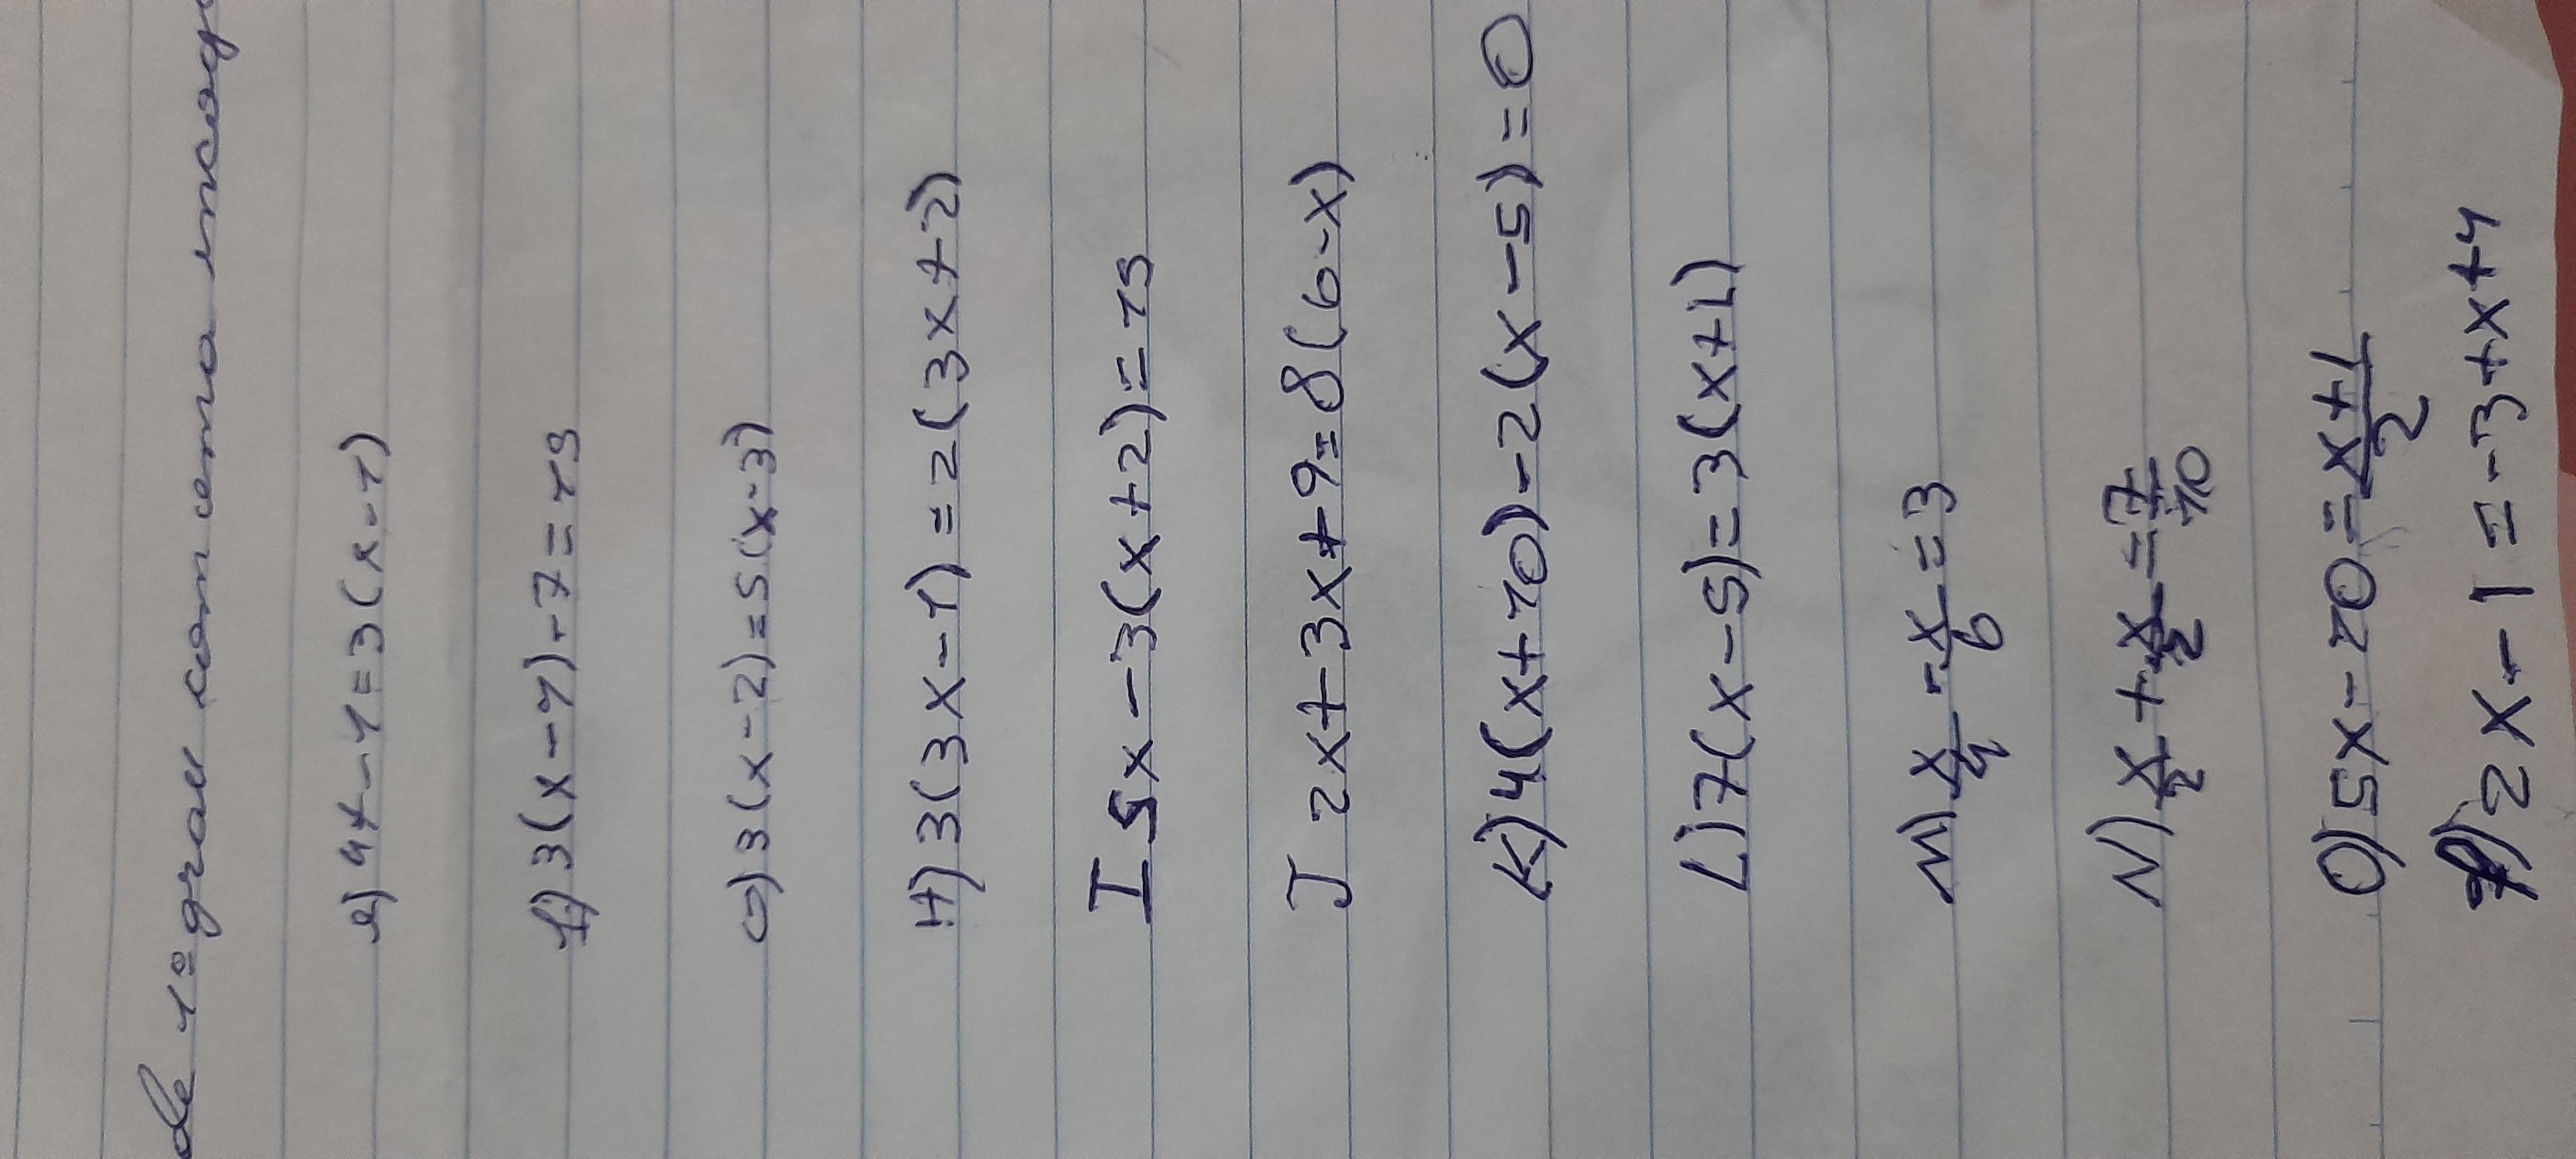 de 1º grau com uma incog
e) 4x-1=3(x-1)
f) 3(x-4)-7=15
G) 3(x-2)=5(x-3)
H) 3(3x-1)=2(3x+2)
I 5x-3(x+2)=15
J 2x+3x+9=8(6-x)
K) 4(x+10)-2(x-5)=0
L) 7(x-5)=3(x+1)
M) x/4-x/6=3
N) x/2+x/2=7/10
O) 5x-10=x+1/2
P) 2x-1=-3+x+4